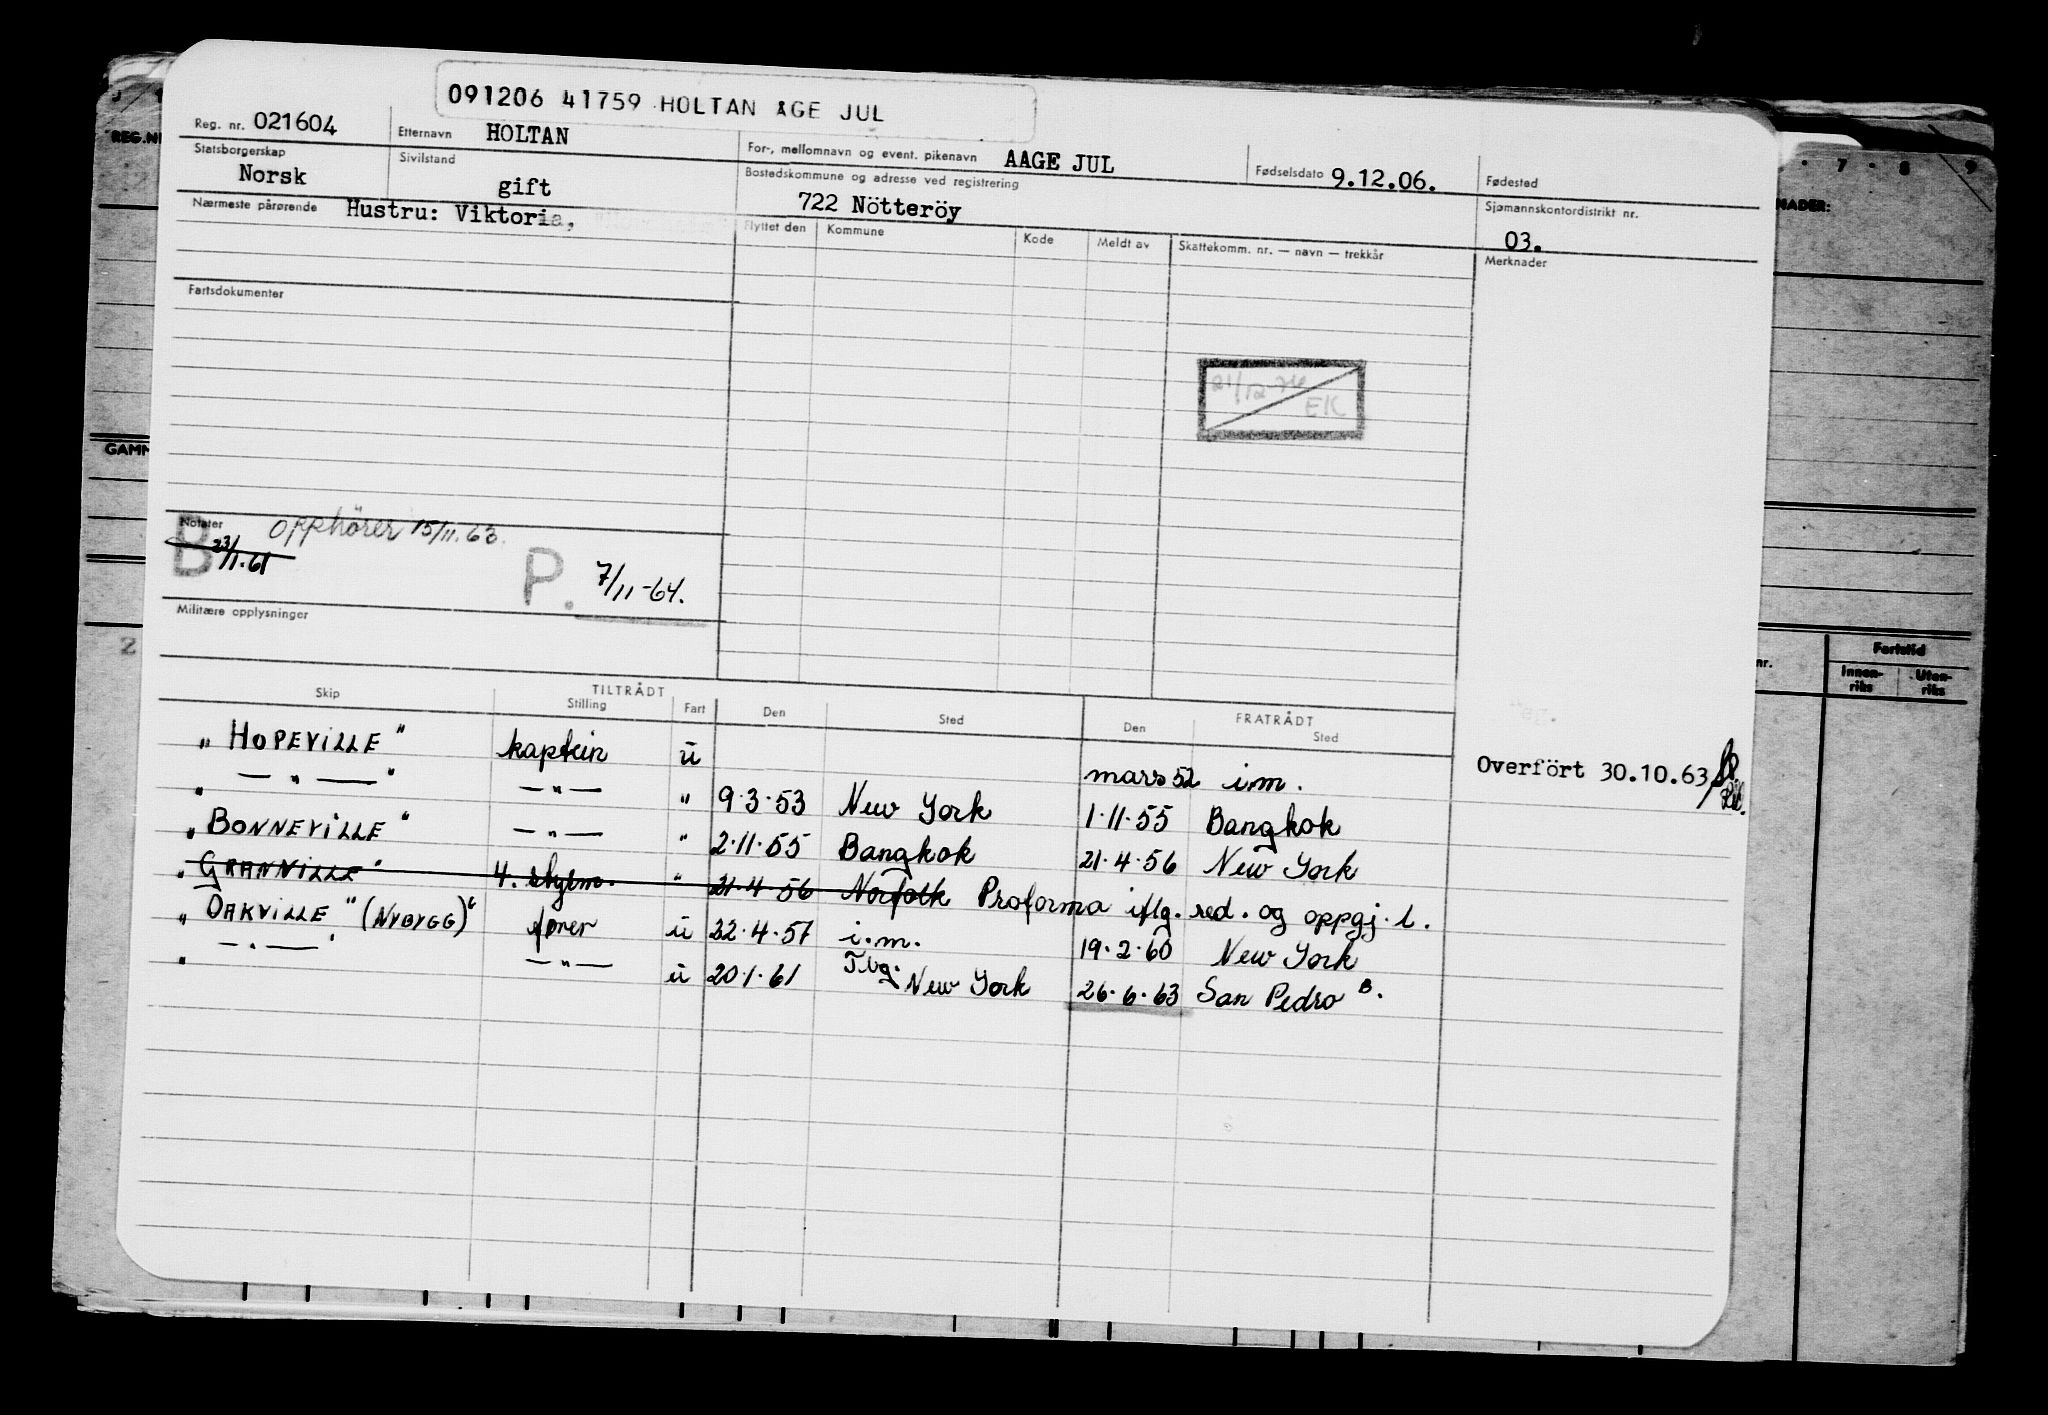 091206 41759 HOLTAN ÅGE JUL
Reg. nr. 021604 Etternavn HOLTAN For-, mellomnavn og event. pikenavn AAGE JUL Fødselsdato 9.12.06. Fødested
Statsborgerskap Norsk Sivilstand gift Bostedskommune og adresse ved registrering 722 Nötteröy Sjømannskontordistrikt nr. 03.
Nærmeste pårørende Hustru: Viktoria, Flyttet den Kommune Kode Meldt av Skattekomm. nr. — navn — trekkår Merknader
Fartsdokumenter
21/12 EK
Notater Opphörer 15/11.63.
B 23/1.61 P. 7/11-64.
Militære opplysninger
Skip TILTRÅDT Stilling Fart Den Sted Den FRATRÅDT Sted
„HOPEVILLE" kaptein u mars 52 i.m. Overfört 30.10.63
„ — " — " — " — " 9.3.53 New York 1.11.55 Bangkok
„BONNEVILLE" — " — " 2.11.55 Bangkok 21.4.56 New York
„GRANVILLE" 4. styrm. " 21.4.56 Norfolk Proforma iflg. red. og oppgj. l.
„OAKVILLE" (NYBYGG)" fører u 22.4.57 i.m. 19.2.60 New York
„ — " — " — " — u 20.1.61 Tbg. New York 26.6.63 San Pedro B.
REG.NR
GAMM
NADER:
7 8 9
nr.
Fartstid
Innen-riks Uten-riks
2